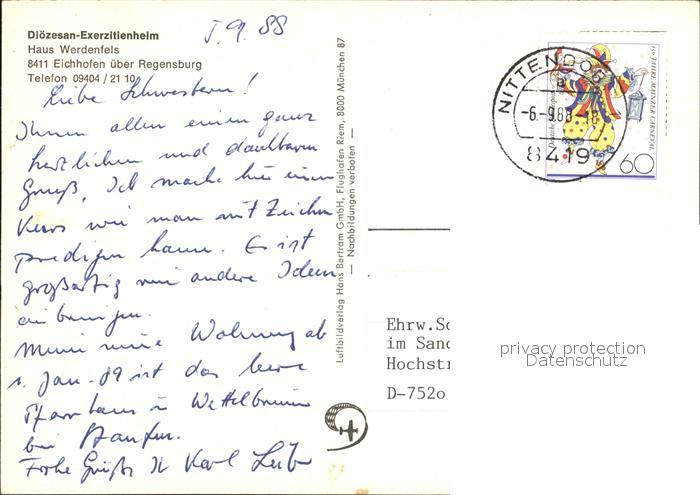 Diözesan-Exerzitienheim
Haus Werdenfels
8411 Eichhofen über Regensburg
Telefon 09404 / 21 10
5.9.88
Liebe Schwestern!
Ihnen allen einen ganz
herzlichen und dankbaren
Gruß, Ich mache hier einen
Kurs wie man mit Zeichen
predigen kann. Es ist
großartig wie andere Ideen
ein bringen.
Meine neue Wohnung ab
1. Jan. 89 ist das leere
Pfarrhaus in Wettelbrunn
bei Staufen.
Frohe Grüße Karl
Luftbildverlag Hans Bertram GmbH, Flughafen Riem, 8000 München 87
— Nachbildungen verboten —
NITTENDORF
-6.-9.88-18
8419
Deutsche Bundespost
150 JAHRE MAINZER CARNEVAL
60
Ehrw.Sc
im Sanc
Hochstr
D-752o
privacy protection
Datenschutz